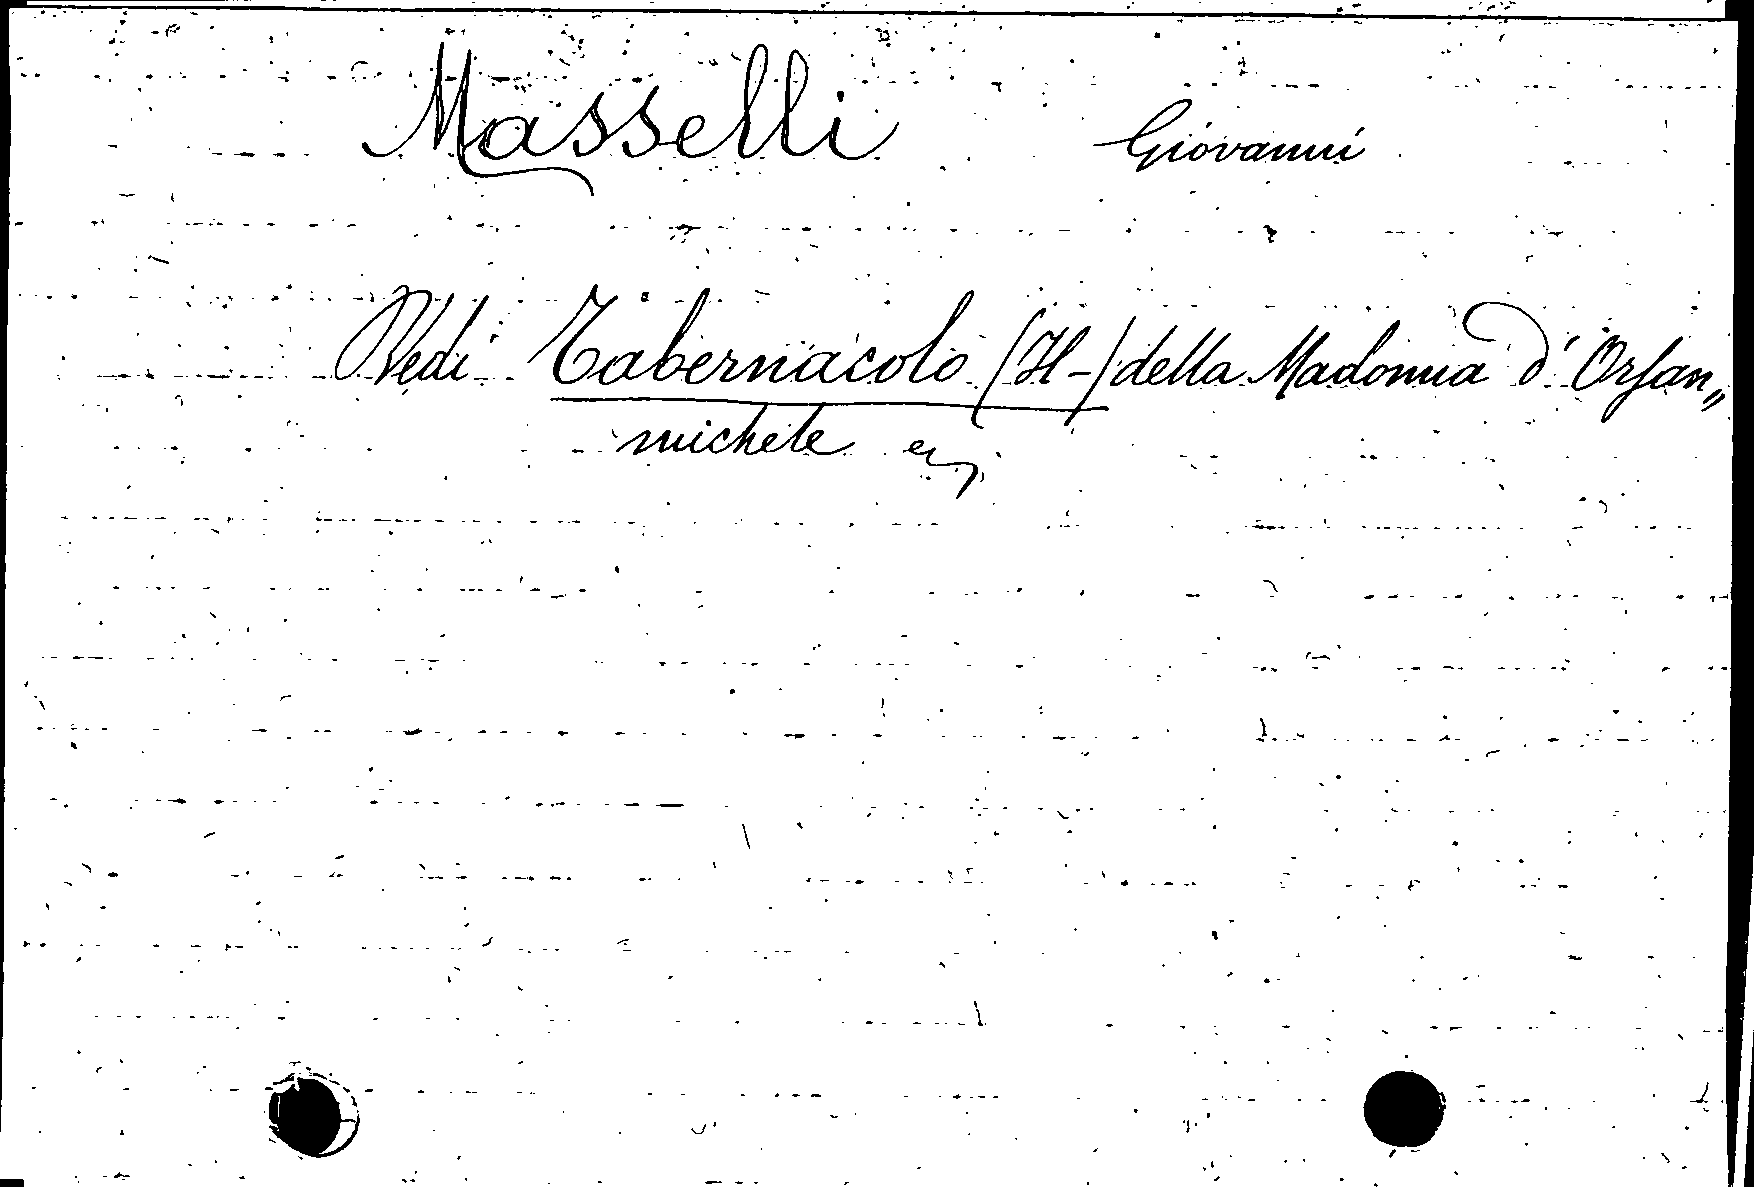 Masselli Giovanni
Vedi Tabernacolo (Il-) della Madonna d'Orsan„
michele